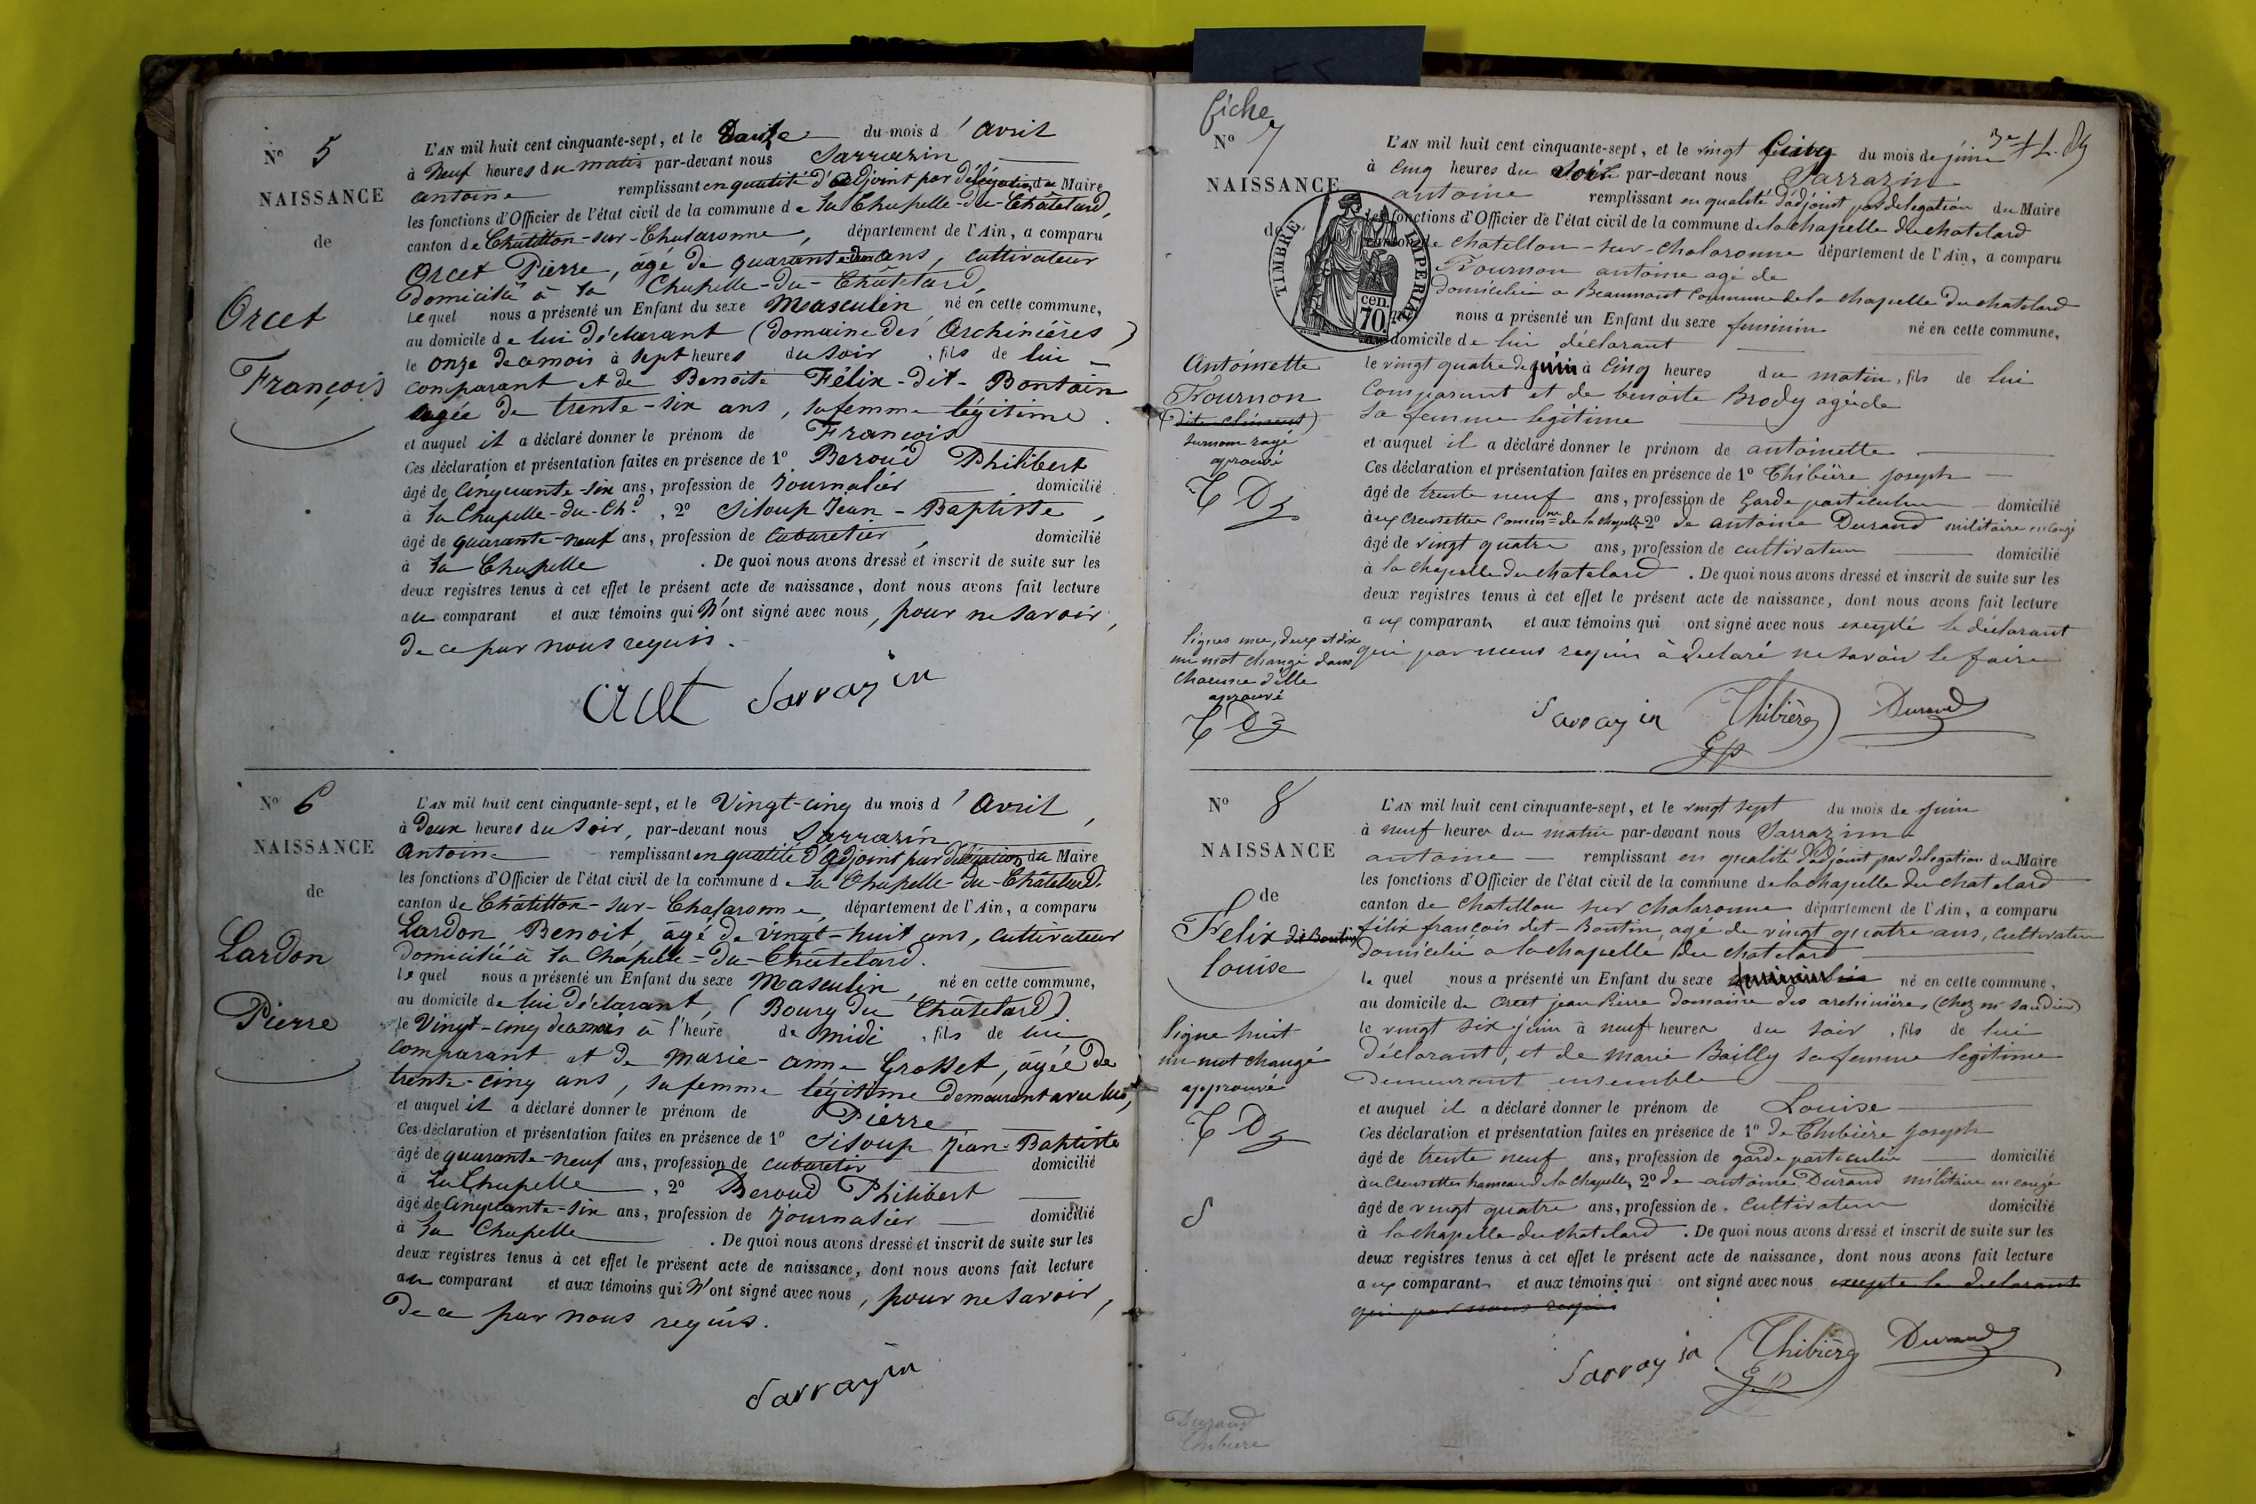 Nº 5
NAISSANCE
de
Orcet
François
L'AN mil huit cent cinquante-sept, et le Douze du mois d'Avril
à Neuf heures du matin par-devant nous Sarrazin
Antoine remplissant en qualité d'adjoint par délégation du Maire
les fonctions d'Officier de l'état civil de la commune de La Chapelle-du-Châtelard,
canton de Châtillon-sur-Chalaronne, département de l'Ain, a comparu
Orcet Pierre, âgé de quarante ans, cultivateur
domicilié à la Chapelle-du-Châtelard,
lequel nous a présenté un Enfant du sexe Masculin né en cette commune,
au domicile de lui déclarant (domaine des Archinières)
le onze de ce mois à sept heures du soir, fils de lui
comparant et de Benoite Félix-dit-Bontin
âgée de trente-six ans, sa femme légitime.
et auquel il a déclaré donner le prénom de François
Ces déclaration et présentation faites en présence de 1º Beroud Philibert
âgé de Cinquante-six ans, profession de Journalier domicilié
à la Chapelle-du-Chd, 2º Siloup Jean-Baptiste,
âgé de quarante-neuf ans, profession de Cabaretier, domicilié
à La Chapelle. De quoi nous avons dressé et inscrit de suite sur les
deux registres tenus à cet effet le présent acte de naissance, dont nous avons fait lecture
au comparant et aux témoins qui N'ont signé avec nous, pour ne savoir,
de ce par nous requis.
Orcet Sarrazin
Nº 6
NAISSANCE
de
Lardon
Pierre
L'AN mil huit cent cinquante-sept, et le Vingt-cinq du mois d'Avril,
à Deux heures du Soir, par-devant nous Sarrazin
Antoine remplissant en qualité d'adjoint par délégation du Maire
les fonctions d'Officier de l'état civil de la commune de La Chapelle-du-Châtelard,
canton de Châtillon-sur-Chalaronne, département de l'Ain, a comparu
Lardon Benoit, agé de vingt-huit ans, cultivateur
domicilié à la Chapelle-du-Châtelard.
lequel nous a présenté un Enfant du sexe Masculin, né en cette commune,
au domicile de lui déclarant, (Bourg du Châtelard)
le Vingt-cinq de ce mois à l'heure de midi, fils de lui
comparant et de Marie-Anne Grosset, âgée de
trente-cinq ans, sa femme légitime demeurant avec lui,
et auquel il a déclaré donner le prénom de Pierre
Ces déclaration et présentation faites en présence de 1º Siloup Jean-Baptiste
âgé de quarante-neuf ans, profession de cabaretier domicilié
à La Chapelle, 2º Beroud Philibert
âgé de Cinquante-six ans, profession de Journalier domicilié
à La Chapelle. De quoi nous avons dressé et inscrit de suite sur les
deux registres tenus à cet effet le présent acte de naissance, dont nous avons fait lecture
au comparant et aux témoins qui N'ont signé avec nous, pour ne savoir,
de ce par nous requis.
Sarrazin
fiche
Nº 7
NAISSANCE
de
TIMBRE IMPERIAL
70 cen.
Antoinette
Fournon
(dite Clément)
surnom rayé
aprouvé
T D S
lignes une, deux et dix
un mot changé dans
chacune d'elle
aprouvé
T D S
L'AN mil huit cent cinquante-sept, et le vingt cinq du mois de juin
à cinq heures du soir par-devant nous Sarrazin
antoine remplissant en qualité d'adjoint par delegation du Maire
les fonctions d'Officier de l'état civil de la commune de la chapelle du chatelard
canton de chatillon-sur-chalaronne département de l'Ain, a comparu
Fournon antoine agé de
domicilié a Beaumont commune de la chapelle du chatelard
nous a présenté un Enfant du sexe feminin né en cette commune,
au domicile de lui déclarant
le vingt quatre de juin à cinq heures du matin, fils de lui
comparant et de benoite Brody agée de
sa femme legitime
et auquel il a déclaré donner le prénom de antoinette
Ces déclaration et présentation faites en présence de 1º Thibière joseph
âgé de trente neuf ans, profession de Garde particulier domicilié
aux Creusettes comune de la chapelle 2º de antoine Durand militaire en congé
âgé de vingt quatre ans, profession de cultivateur domicilié
à la chapelle du chatelard. De quoi nous avons dressé et inscrit de suite sur les
deux registres tenus à cet effet le présent acte de naissance, dont nous avons fait lecture
aux comparants et aux témoins qui ont signé avec nous excepté le déclarant
qui par nous requis à déclaré ne savoir le faire
Sarrazin Thibière Durand
gp
Nº 8
NAISSANCE
de
Félix dit Bontin
Louise
ligne huit
un mot changé
approuvé
T D S
S
L'AN mil huit cent cinquante-sept, et le vingt sept du mois de juin
à neuf heures du matin par-devant nous Sarrazin
antoine remplissant en qualité d'adjoint par delegation du Maire
les fonctions d'Officier de l'état civil de la commune de la chapelle du chatelard
canton de chatillon sur chalaronne département de l'Ain, a comparu
félix françois dit-Bontin, agé de vingt quatre ans, cultivateur
domicilié a la chapelle du chatelard
lequel nous a présenté un Enfant du sexe feminin né en cette commune,
au domicile de Orcet jean Pierre domaine des archinières (chez mr
le vingt six juin à neuf heures du soir, fils de lui
déclarant, et de Marie Bailly sa femme legitime
demeurant ensemble
et auquel il a déclaré donner le prénom de Louise
Ces déclaration et présentation faites en présence de 1º de Thibière joseph
âgé de trente neuf ans, profession de garde particulier domicilié
aux Creusettes hameau de la chapelle, 2º de antoine Durand militaire en congé
âgé de vingt quatre ans, profession de cultivateur domicilié
à la chapelle du chatelard. De quoi nous avons dressé et inscrit de suite sur les
deux registres tenus à cet effet le présent acte de naissance, dont nous avons fait lecture
aux comparants et aux témoins qui ont signé avec nous excepté le déclarant
qui par nous requis
Sarrazin Thibière Durand
gp
Durand
Thibiere